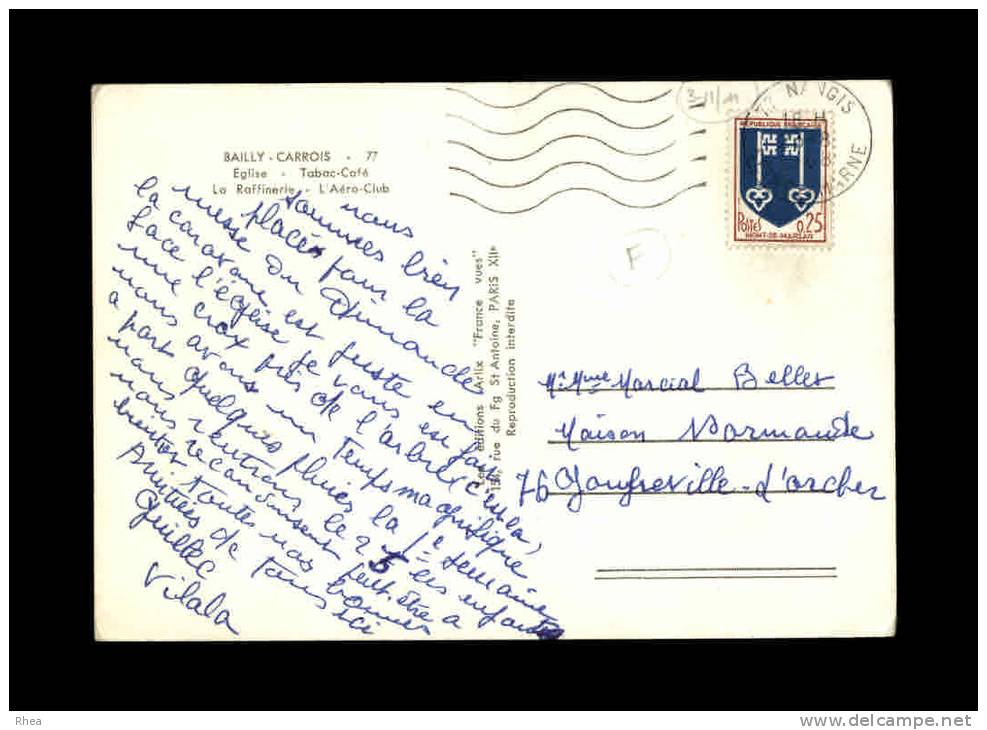 BAILLY - CARROIS - 77
Eglise - Tabac-Café
La Raffinerie - L'Aéro-Club
nous
sommes bien
placés pour la
messe du Dimanche
la caravane est juste en
face l'église je vous en fais
une croix près de l'arbre (c'est la)
nous avons un temps magnifique
a part quelques pluies la 1e semaine
nous rentrons le 25 les enfants
nous reconduisent peut-être a
bientot toutes nos bonnes
Amitiés de tous ici
Vilala
Les éditions Arlix "France vues"
rue du Fg St Antoine, PARIS XIIe
Reproduction interdite
3-11/11
F
NANGIS
16 H
MARNE
REPUBLIQUE FRANCAISE
POSTES 0,25
MONT-DE-MARSAN
Mr. Mme Marcial Belles
Maison Normande
76 Gonfreville-l'orcher
Rhea
www.delcampe.net